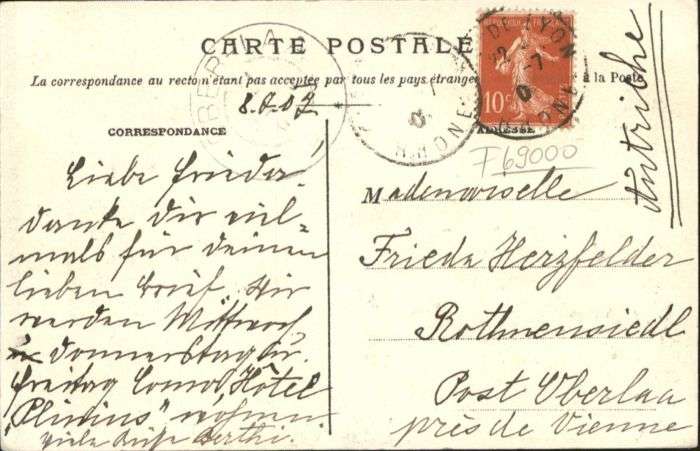 CARTE POSTALE
La correspondance au recto n'étant pas acceptée par tous les pays étrangers à la Poste
8.8.07
CORRESPONDANCE
ADRESSE
10c
DE LYON
RHONE
F69000
Autriche
Liebe Frieda!
danke Dir viel=
mals für deinen
lieben Brief. Wir
werden Mittwoch
Donnerstag u.
Freitag Como, Hôtel
"Plinius" wohnen.
viele Grüße Berthi.
Mademoiselle
Frieda Herzfelder
Rothneusiedl
Post Oberlaa
près de Vienne